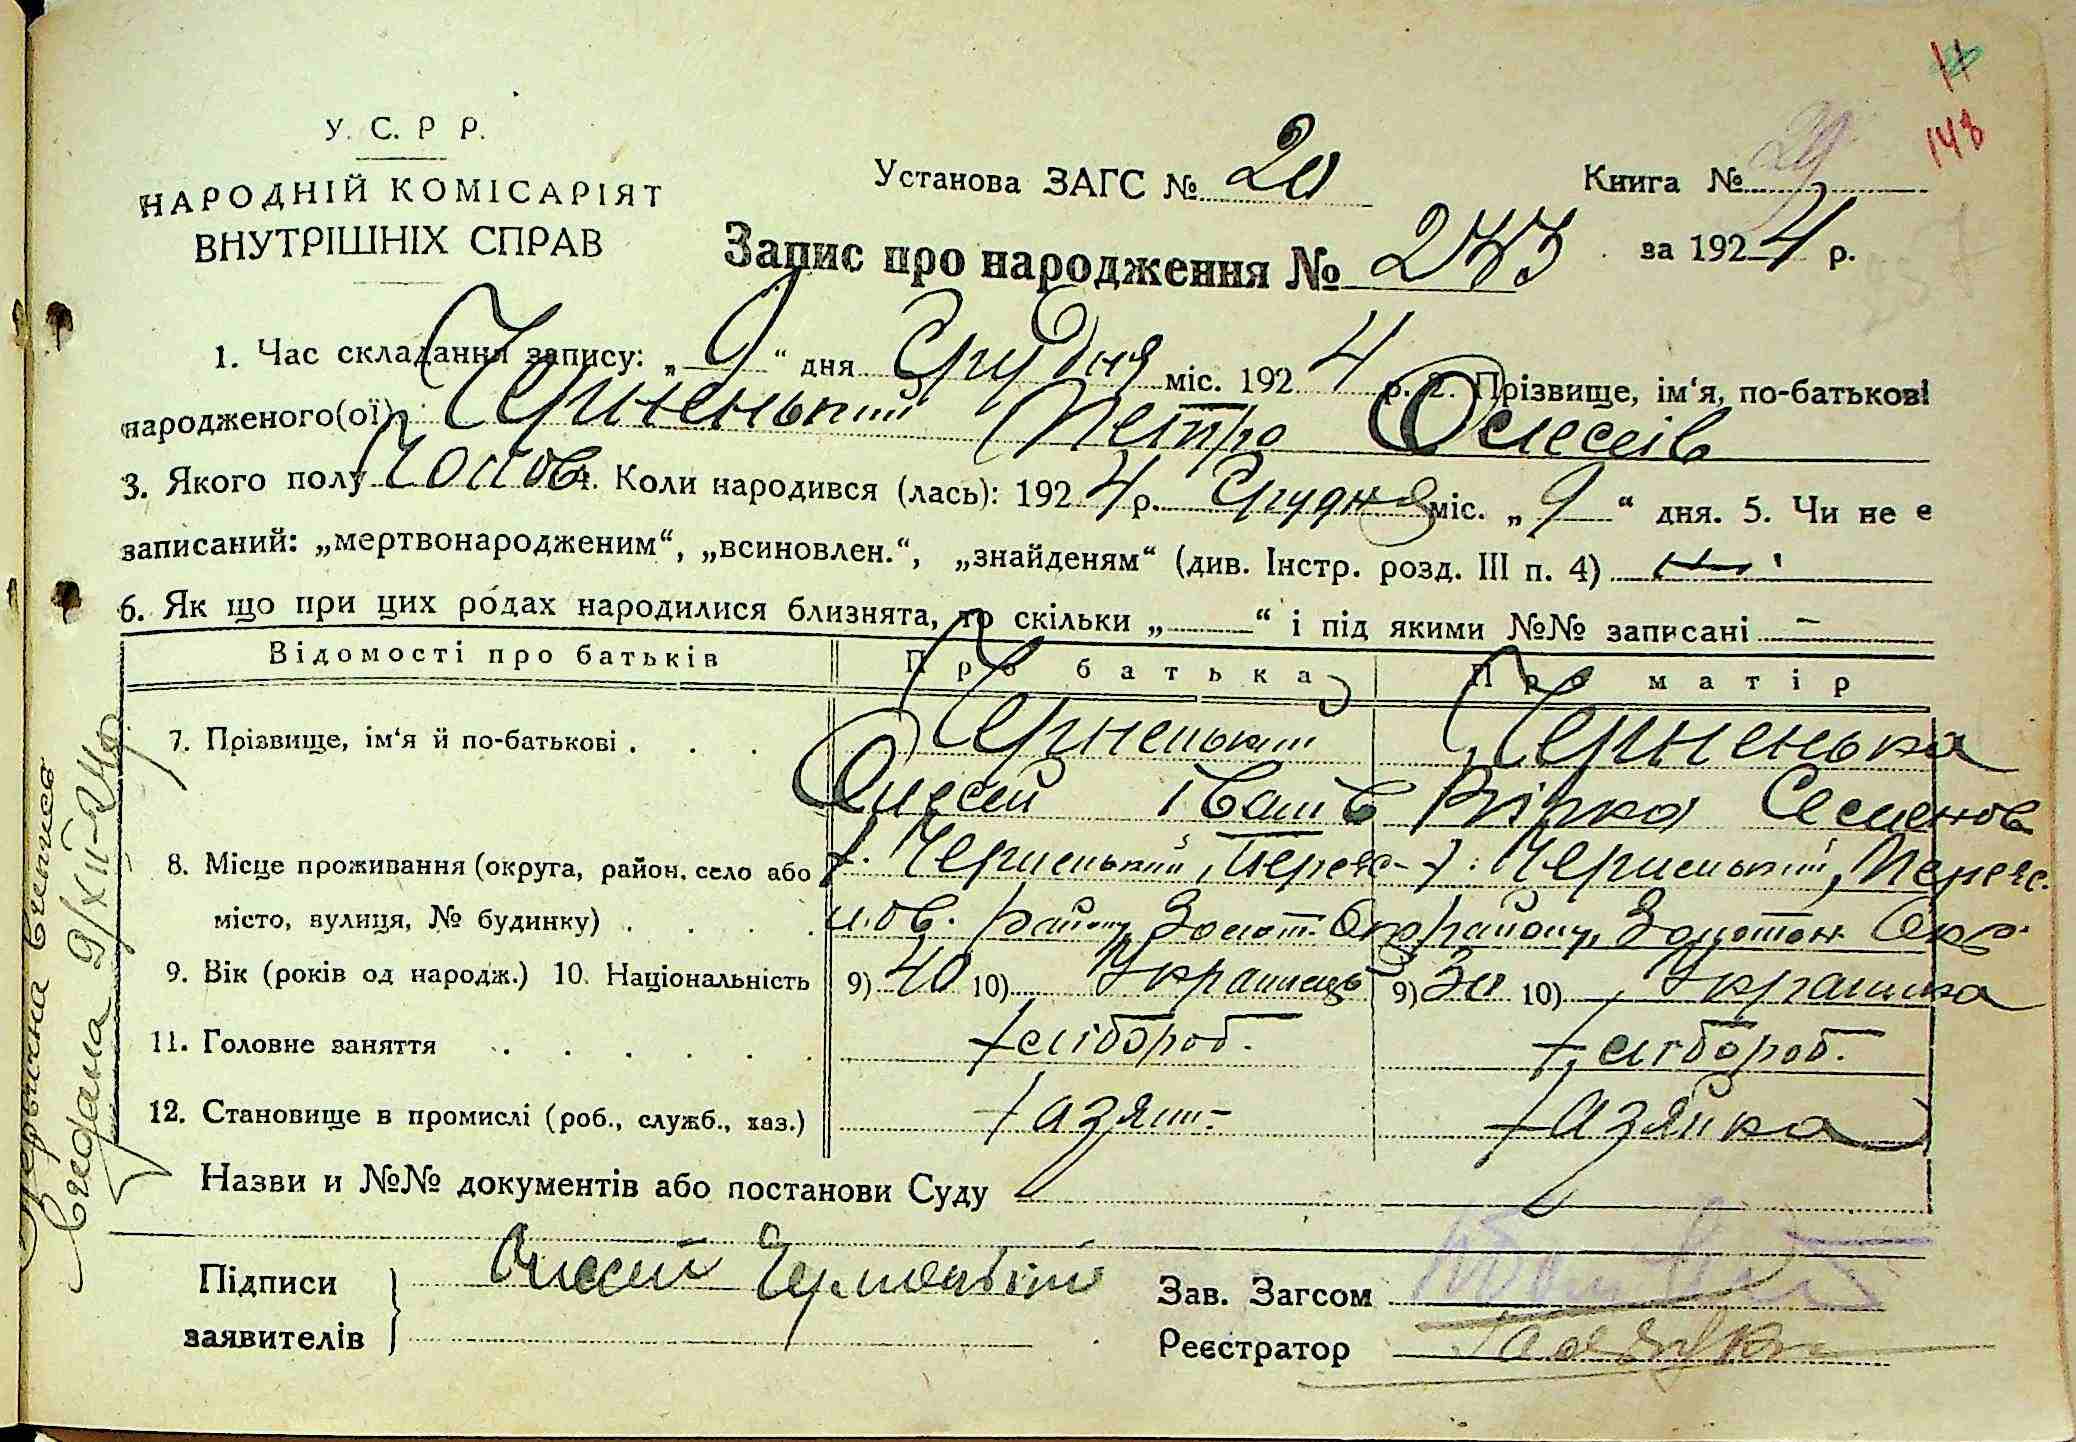 У. С. Р Р.
НАРОДНІЙ КОМІСАРІЯТ
ВНУТРІШНІХ СПРАВ
148
Установа ЗАГС № 20
Книга № 29
Запис про народження № 233 за 1924 р.
1. Час складання запису: „9“ дня Грудня міс. 1924 р. 2. Прізвище, ім‘я, по-батькові
народженого(ої) Черненький Петро Олексіїв
3. Якого полу Чолов. 4. Коли народився (лась): 1924 р. Грудня міс. „9“ дня. 5. Чи не є
записаний: „мертвонародженим“, „всиновлен.“, „знайденям“ (див. Інстр. розд. III п. 4) Ні
6. Як що при цих родах народилися близнята, то скільки „——“ і під якими №№ записані —
Відомості про батьків Про батька Про матір
7. Прізвище, ім‘я й по-батькові . . . Черненький Черненька
Олексій Іванів Семенов
8. Місце проживання (округа, район, село або х. Черненький, Переяс- х. Черненький, Переяс.
місто, вулиця, № будинку) . . . . лов. району Золот. Окр району, Золотон. Окр.
9. Вік (років од народж.) 10. Національність 9) 40 10) Українець 9) 30 10) Українка
11. Головне заняття . . . . . . хлібороб. хлібороб.
12. Становище в промислі (роб., служб., хаз.) хазяїн. хазяйка
Назви и №№ документів або постанови Суду
Підписи
заявителів
Олексій Черненький
Зав. Загсом
Реєстратор
Первична выпись
выдана 9/XII-24р.